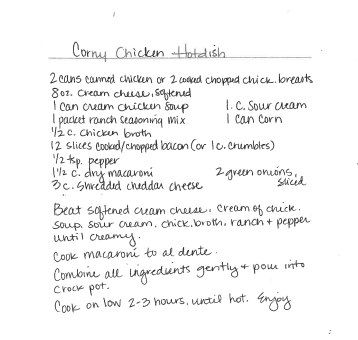 Corny Chicken Hotdish
2 cans canned chicken or 2 cooked chopped chick. breasts
8 oz. cream cheese, softened
1 can cream chicken soup 1 c. sour cream
1 packet ranch seasoning mix 1 can corn
1/2 c. chicken broth
12 slices cooked/chopped bacon (or 1 c. crumbles)
1/2 tsp. pepper
1 1/2 c. dry macaroni 2 green onions,
3 c. shredded cheddar cheese sliced
Beat softened cream cheese, cream of chick.
soup, sour cream, chick. broth, ranch + pepper
until creamy.
Cook macaroni to al dente.
Combine all ingredients gently + pour into
crock pot.
Cook on low 2-3 hours, until hot. Enjoy